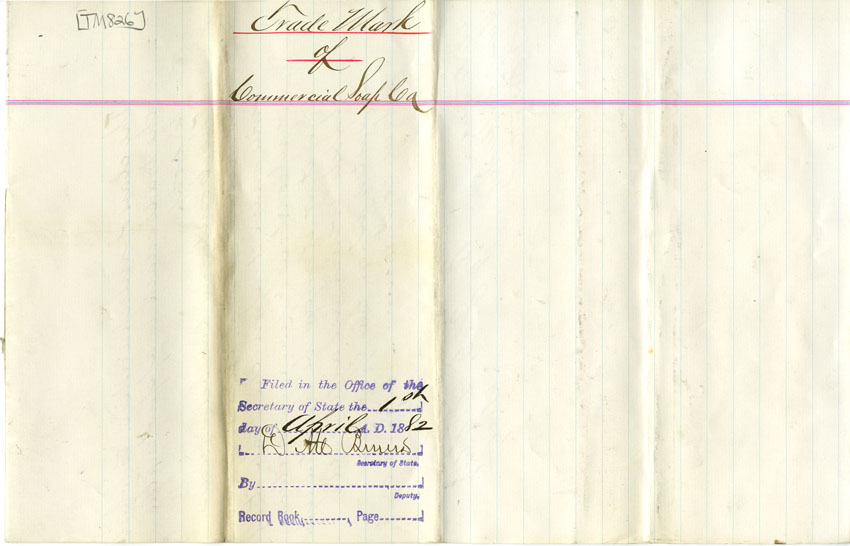 [TM826]
Trade Mark
of
Commercial Soap Co
Filed in the Office of the
Secretary of State the 1st
day of April A. D. 1882
D M Burns
Secretary of State.
By
Deputy.
Record Book Page